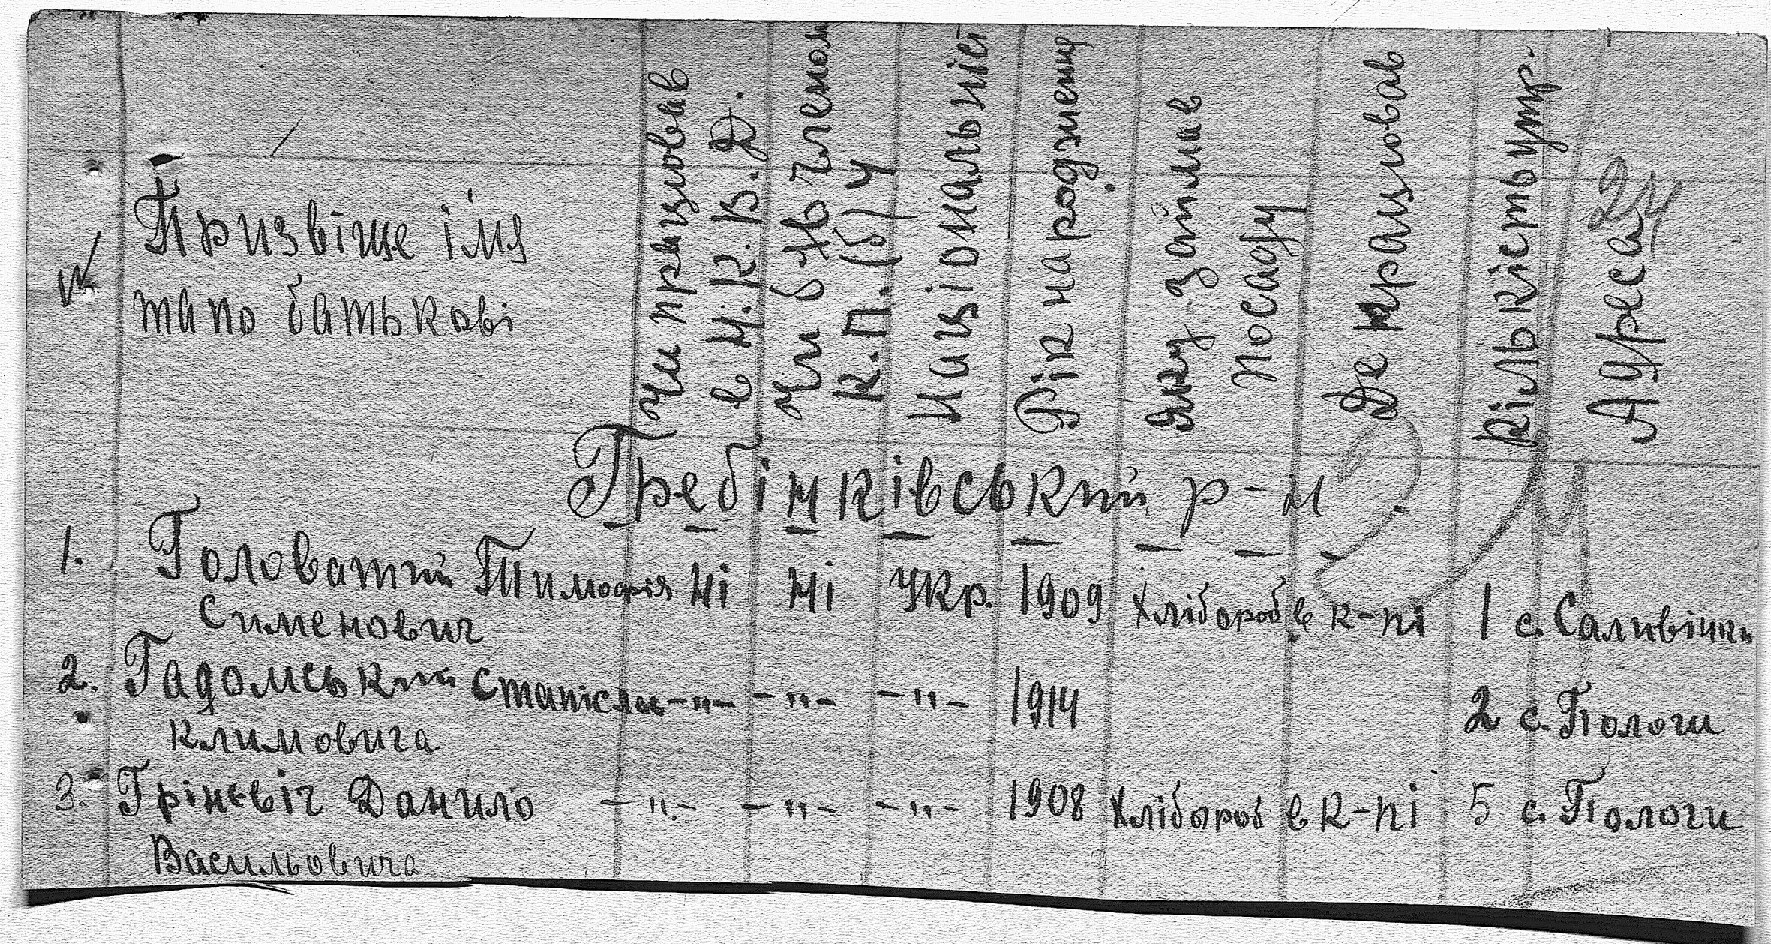 Призвіще імя
та по батькові
Чи працював
в Н.К.В.Д.
Чи був членом
К.П.(б)У
Національніст
Рік народженну
Яку займав
посаду
Де працював
Кількість утр.
Адреса
Гребінківський р-н
1. Головатий Тимофія Ні Ні Укр. 1909 Хлібороб в к-пі 1 с. Саливінки
Сименович
2. Гадомський Станіслав -"- -"- -"- 1914 2 с. Пологи
Климовича
3. Грінєвіч Данило -"- -"- -"- 1908 Хлібороб в к-пі 5 с. Пологи
Васильовича